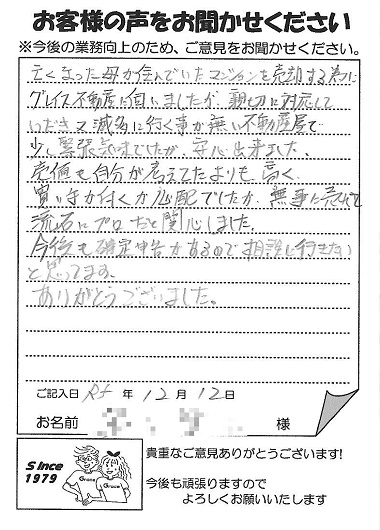 お客様の声をお聞かせください
※今後の業務向上のため、ご意見をお聞かせください。
亡くなった母が住んでいたマンションを売却する為に
グレイス不動産に伺いましたが、親切に対応して
いただき又滅多に行く事が無い不動産屋で
少し緊張気味でしたが、安心出来ました、
売値も自分が考えてたよりも高く、
買い手が付くか心配でしたが、無事に売れて
流石にプロだと関心しました。
今後も確定申告があるので相談に行きたい
と思ってます、
ありがとうございました。
ご記入日 R5 年 12 月 12 日
お名前 様
Since
1979
Grace
Grace
貴重なご意見ありがとうございます!
今後も頑張りますので
よろしくお願いいたします